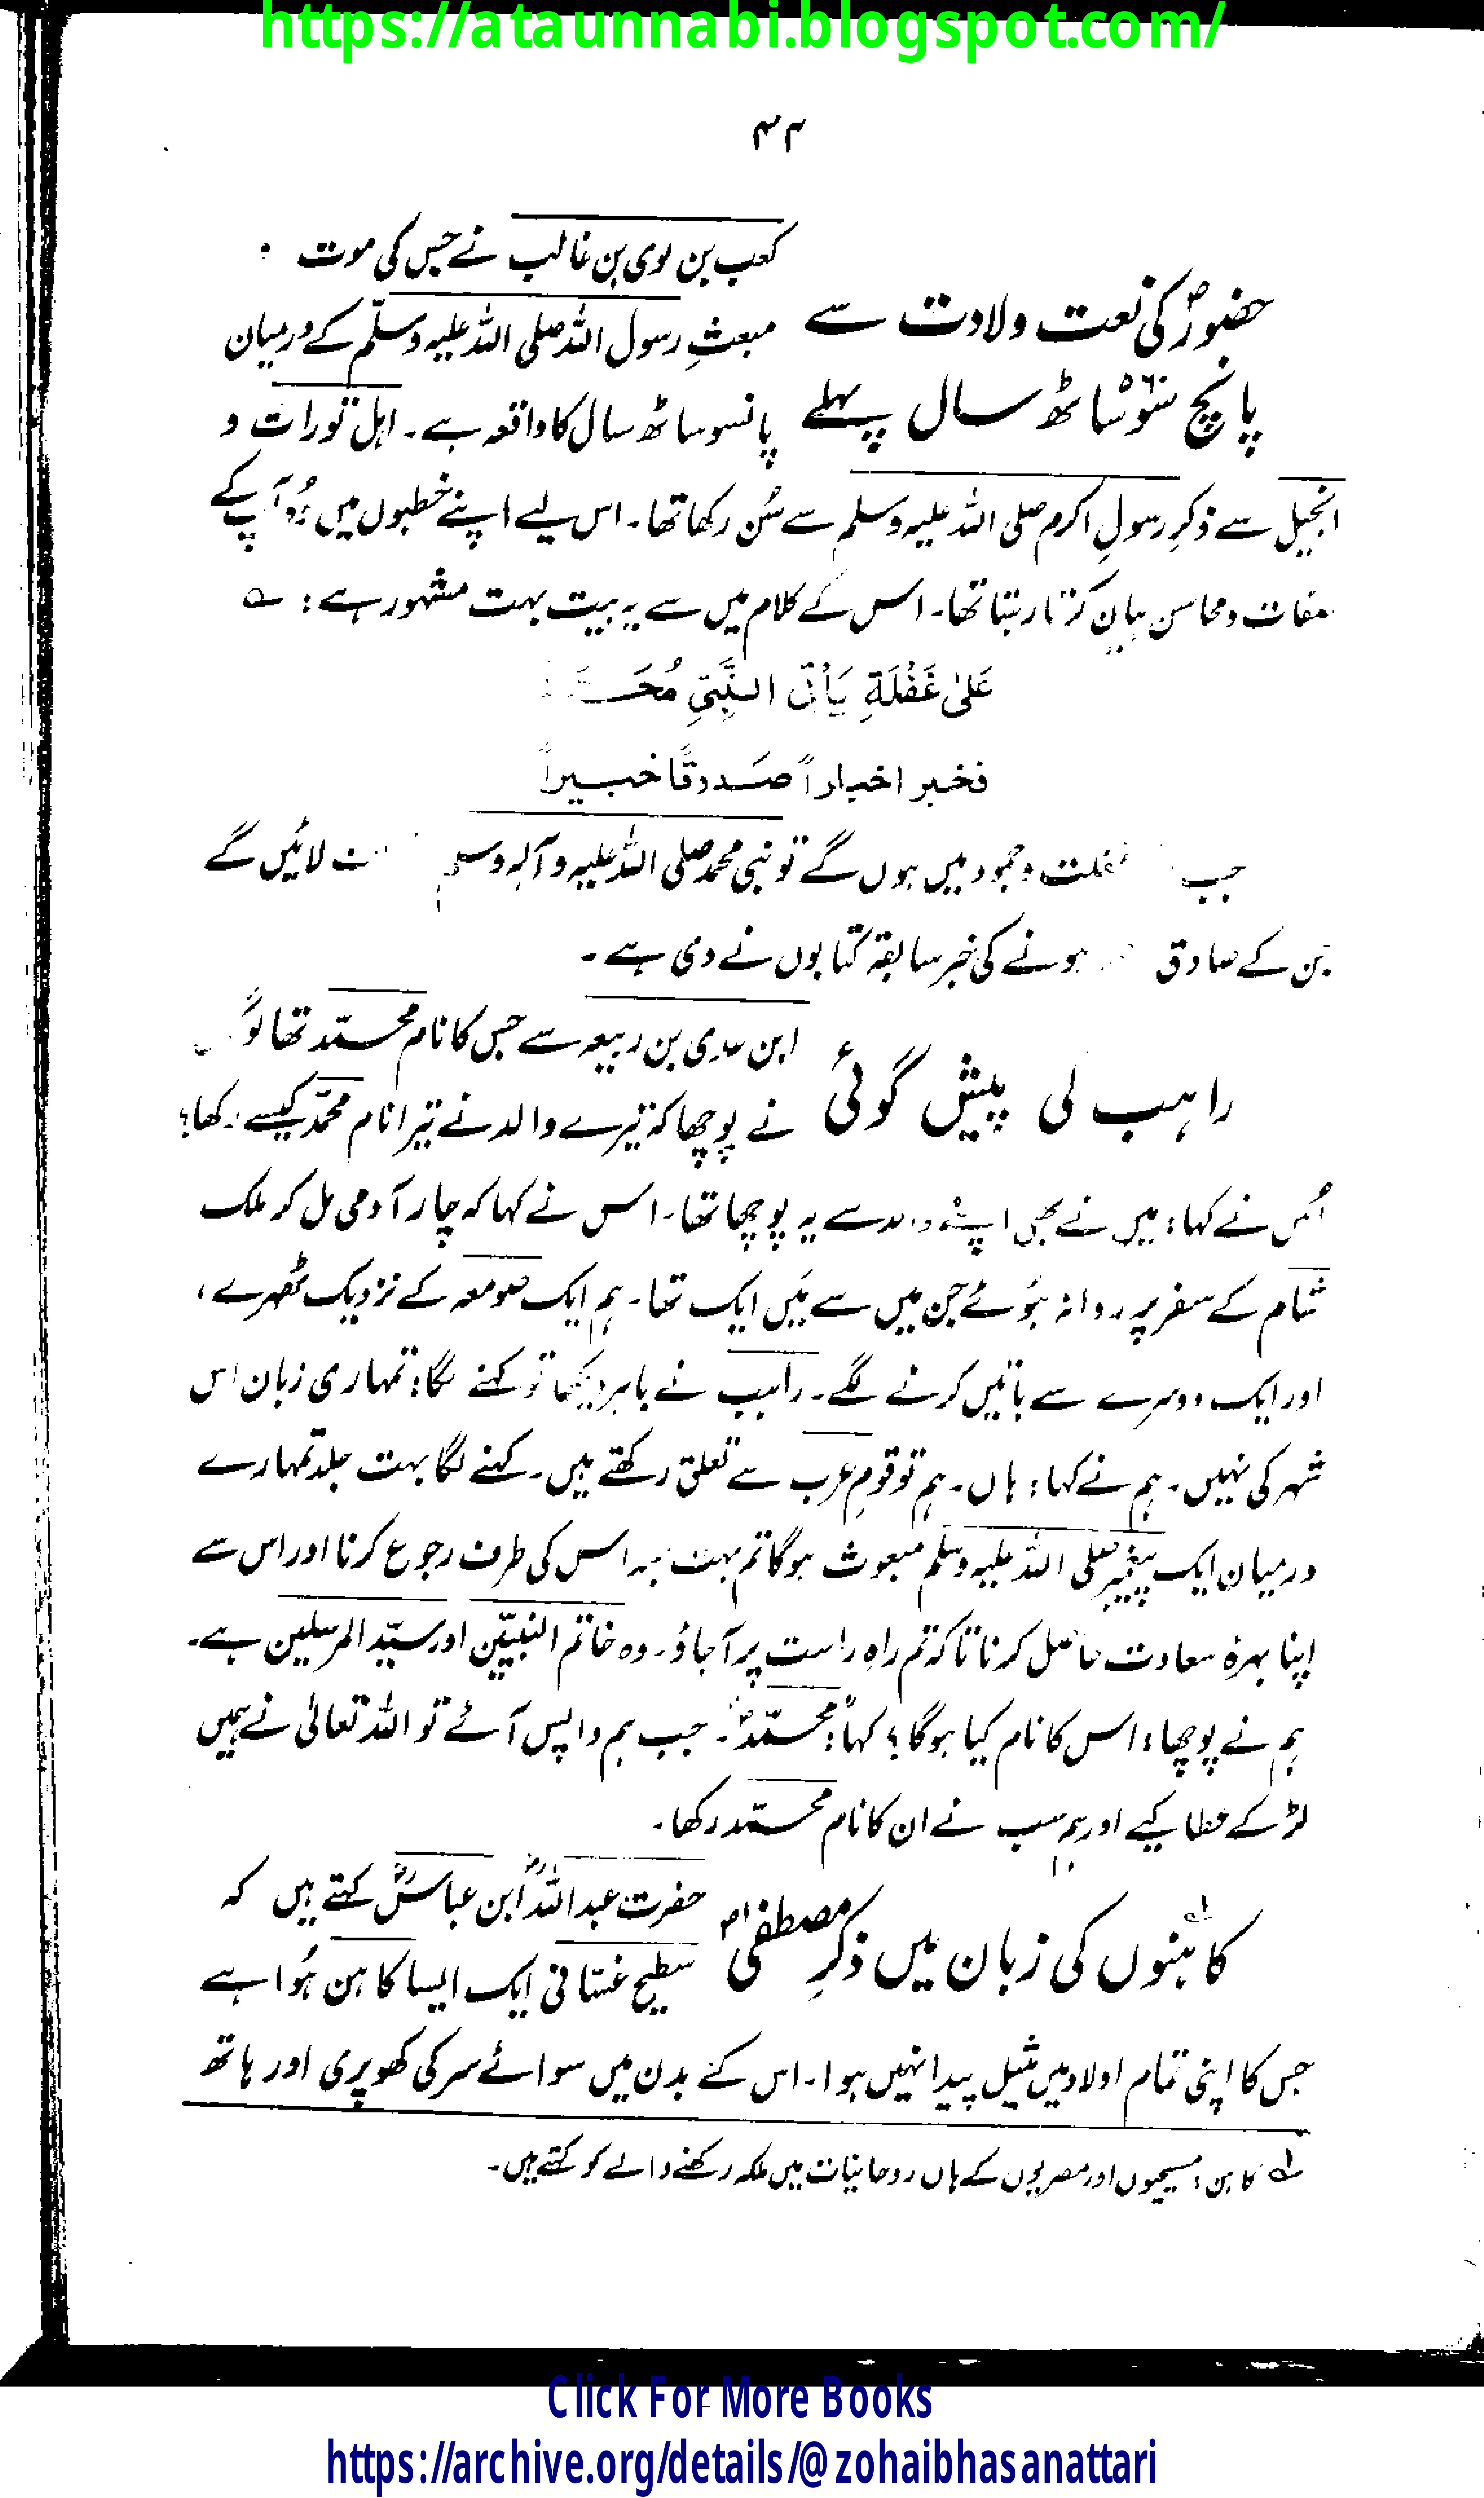 https://ataunnabi.blogspot.com/
۴۲
کعب بن لوی بن غالب نے جس کی موت
حضورؐ کی نعت ولادت سے
مبعثِ رسول اللہ صلی اللہ علیہ وسلّم کے درمیان
پانچ سَو ساٹھ سال پہلے
پانسو ساٹھ سال کا واقعہ ہے۔ اہل تورات و
انجیل سے ذکرِ رسولِ اکرم صلی اللہ علیہ وسلم سے سُن رکھا تھا۔ اس لیے اپنے خطبوں میں وُہ آپ کے
صفات و محاسن بیان کرتا رہتا تھا۔ اس کے کلام میں سے یہ بیت بہت مشہور ہے : ؎
عَلیٰ غَفْلَةِ یَأتی النَّبِیِّ مُحَـ
فخبر اخباراً صَدوقًا خبیراً
جب غفلت و جمود میں ہوں گے تو نبی محمد صلی اللہ علیہ وآلہ وسلم لائیں گے
جن کے صادق ہونے کی خبر سابقہ کتابوں نے دی ہے۔
ابن عدی بن ربیعہ سے جس کا نام محمّد تھا
راہب کی پیش گوئی
نے پوچھا کہ تیرے والد نے تیرا نام محمدؐ کیسے رکھا؟
اُس نے کہا : میں نے بھی اپنے والد سے یہ پوچھا تھا۔ اس نے کہا کہ چار آدمی مل کر ملک
شام کے سفر پر روانہ ہُوئے جن میں سے مَیں ایک تھا۔ ہم ایک صومعہ کے نزدیک ٹھہرے،
اور ایک دوسرے سے باتیں کرنے لگے۔ راہب نے باہر دیکھا تو کہنے لگا : تمہاری زبان اس
شہر کی نہیں۔ ہم نے کہا : ہاں۔ ہم تو قومِ عرب سے تعلق رکھتے ہیں۔ کہنے لگا بہت جلد تمہارے
درمیان ایک پیغمبر صلی اللہ علیہ وسلم مبعوث ہوگا تم بہت جلد اس کی طرف رجوع کرنا اور اس سے
اپنا بہرۂ سعادت حاصل کرنا تاکہ تم راہِ راست پر آجاؤ۔ وہ خاتم النبیّین اور سیّد المرسلین ہے۔
ہم نے پوچھا : اس کا نام کیا ہوگا ؟ کہا : محمّدؐ۔ جب ہم واپس آئے تو اللہ تعالیٰ نے ہمیں
لڑکے عطا کیے اور ہم سب نے ان کا نام محمّد رکھا۔
حضرت عبداللہؓ ابن عباسؓ کہتے ہیں کہ
کاہنوں کی زبان میں ذکرِ مصطفیٰؐ
سطیح غسّانی ایک ایسا کاہن ہُوا ہے
جس کا اپنی تمام اولاد میں مثیل پیدا نہیں ہوا۔ اس کے بدن میں سوائے سر کی کھوپری اور ہاتھ
؎ کاہن : مسیحیوں اور مصریوں کے ہاں روحانیات میں ملکہ رکھنے والے کو کہتے ہیں۔
Click For More Books
https://archive.org/details/@zohaibhasanattari